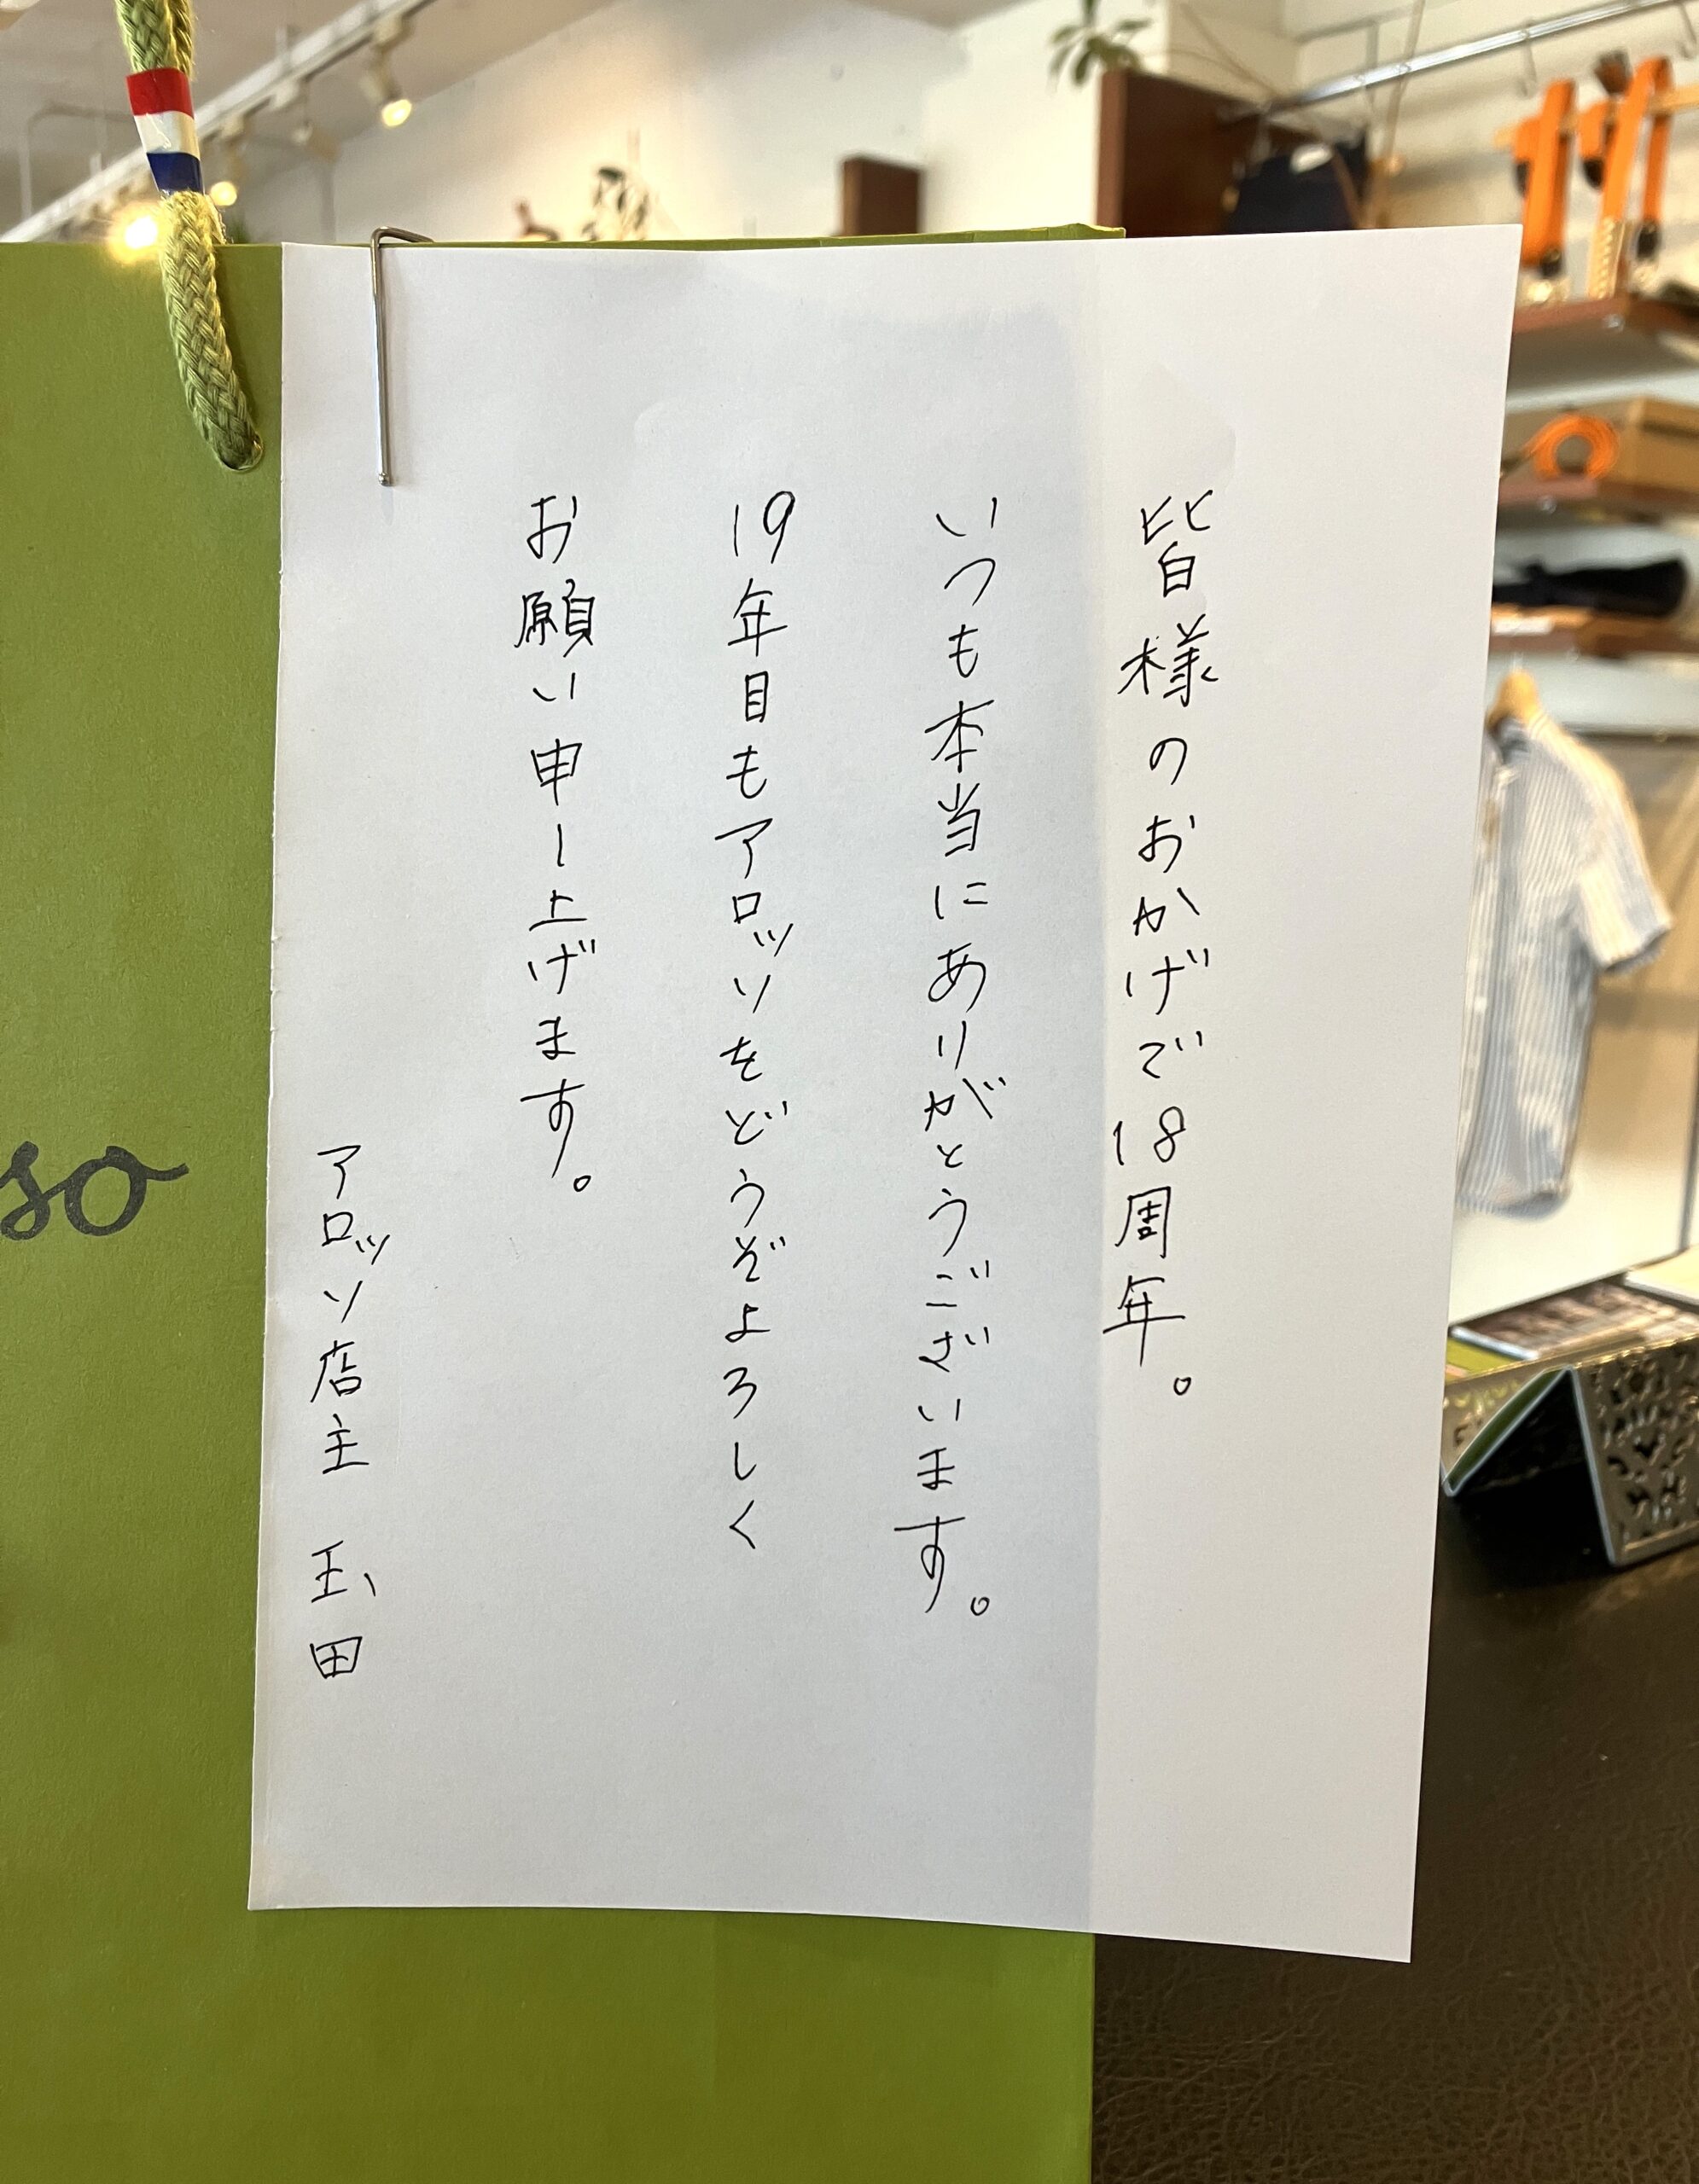 皆様のおかげで18周年。
いつも本当にありがとうございます。
19年目もアロッソをどうぞよろしく
お願い申し上げます。
アロッソ店主 玉田
so